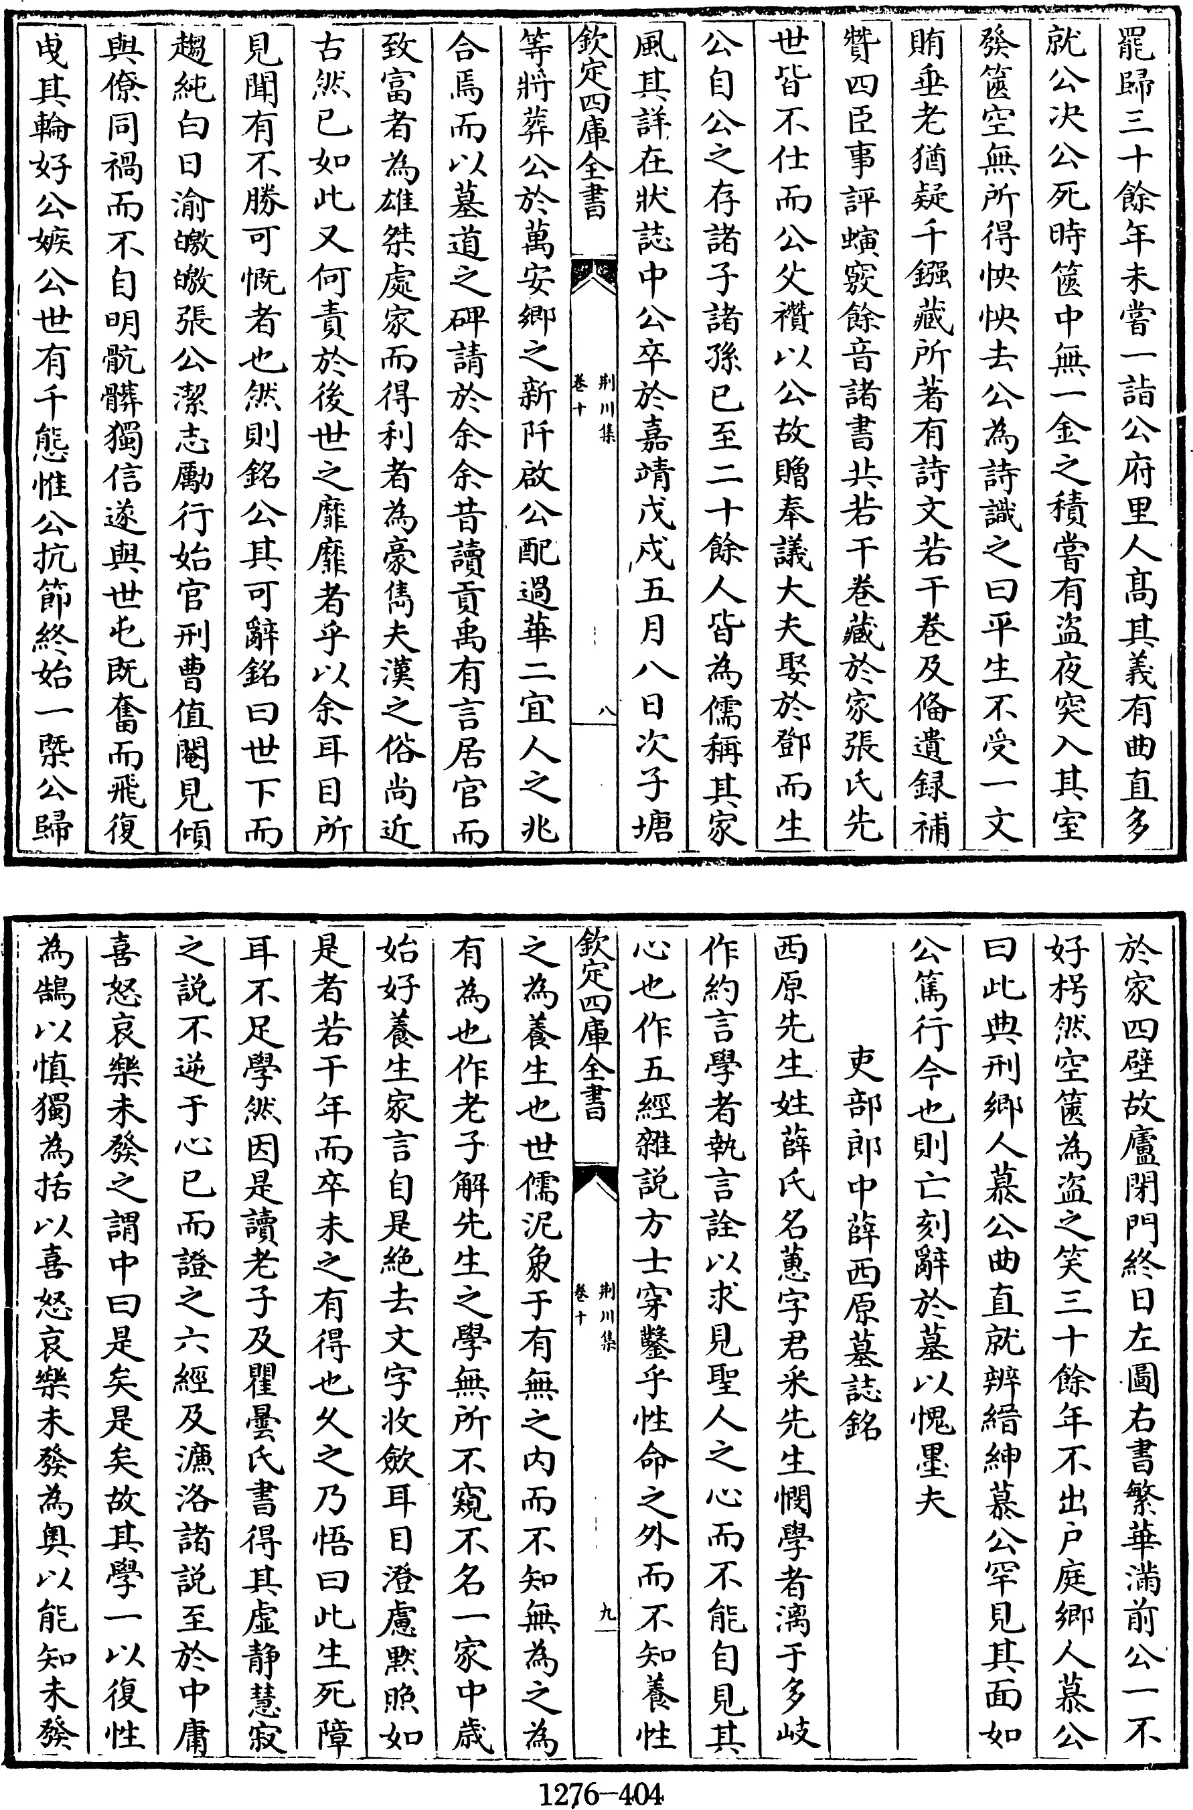 罷歸三十餘年未嘗一詣公府里人髙其義有曲直多
就公决公死時篋中無一金之積嘗有盗夜突入其室
發篋空無所得怏怏去公為詩識之曰平生不受一文
賄垂老猶疑千鏹藏所著有詩文若干卷及脩遺録補
贊四臣事評螾竅餘音諸書共若干卷藏於家張氏先
世皆不仕而公父禶以公故贈奉議大夫娶於鄧而生
公自公之存諸子諸孫已至二十餘人皆為儒稱其家
風其詳在狀誌中公卒於嘉靖戊戌五月八日次子塘
欽定四庫全書
荆川集
卷十
八
等將葬公於萬安鄉之新阡啟公配過華二宜人之兆
合焉而以墓道之碑請於余余昔讀貢禹有言居官而
致富者為雄桀處家而得利者為豪雋夫漢之俗尚近
古然已如此又何責於後世之靡靡者乎以余耳目所
見聞有不勝可慨者也然則銘公其可辭銘曰世下而
趨純白日渝皦皦張公潔志勵行始官刑曹值閹見傾
與僚同禍而不自明骯髒獨信遂與世屯既奮而飛復
曳其輪好公嫉公世有千態惟公抗節終始一槩公歸
於家四壁故廬閉門終日左圖右書繁華滿前公一不
好枵然空篋為盗之笑三十餘年不出户庭鄉人慕公
曰此典刑鄉人慕公曲直就辨縉紳慕公罕見其面如
公篤行今也則亡刻辭於墓以愧墨夫
吏部郎中薛西原墓誌銘
西原先生姓薛氏名蕙字君采先生憫學者漓于多岐
作約言學者執言詮以求見聖人之心而不能自見其
心也作五經雜説方士穿鑿乎性命之外而不知養性
欽定四庫全書
荆川集
卷十
九
之為養生也世儒泥象于有無之内而不知無為之為
有為也作老子解先生之學無所不窺不名一家中歲
始好養生家言自是絶去文字收斂耳目澄慮黙照如
是者若干年而卒未之有得也久之乃悟曰此生死障
耳不足學然因是讀老子及瞿曇氏書得其虚静慧寂
之説不逆于心已而證之六經及濂洛諸説至於中庸
喜怒哀樂未發之謂中曰是矣是矣故其學一以復性
為鵠以慎獨為括以喜怒哀樂未發為奥以能知未發
1276-404